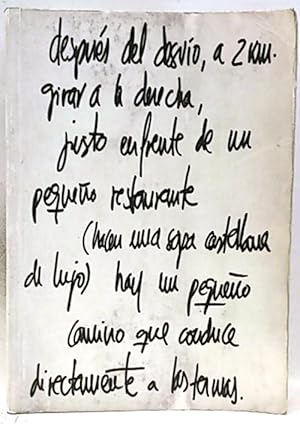 después del desvío, a 2 km.
girar a la derecha,
justo enfrente de un
pequeño restaurante
(hacen una sopa castellana
de lujo) hay un pequeño
camino que conduce
directamente a las termas.